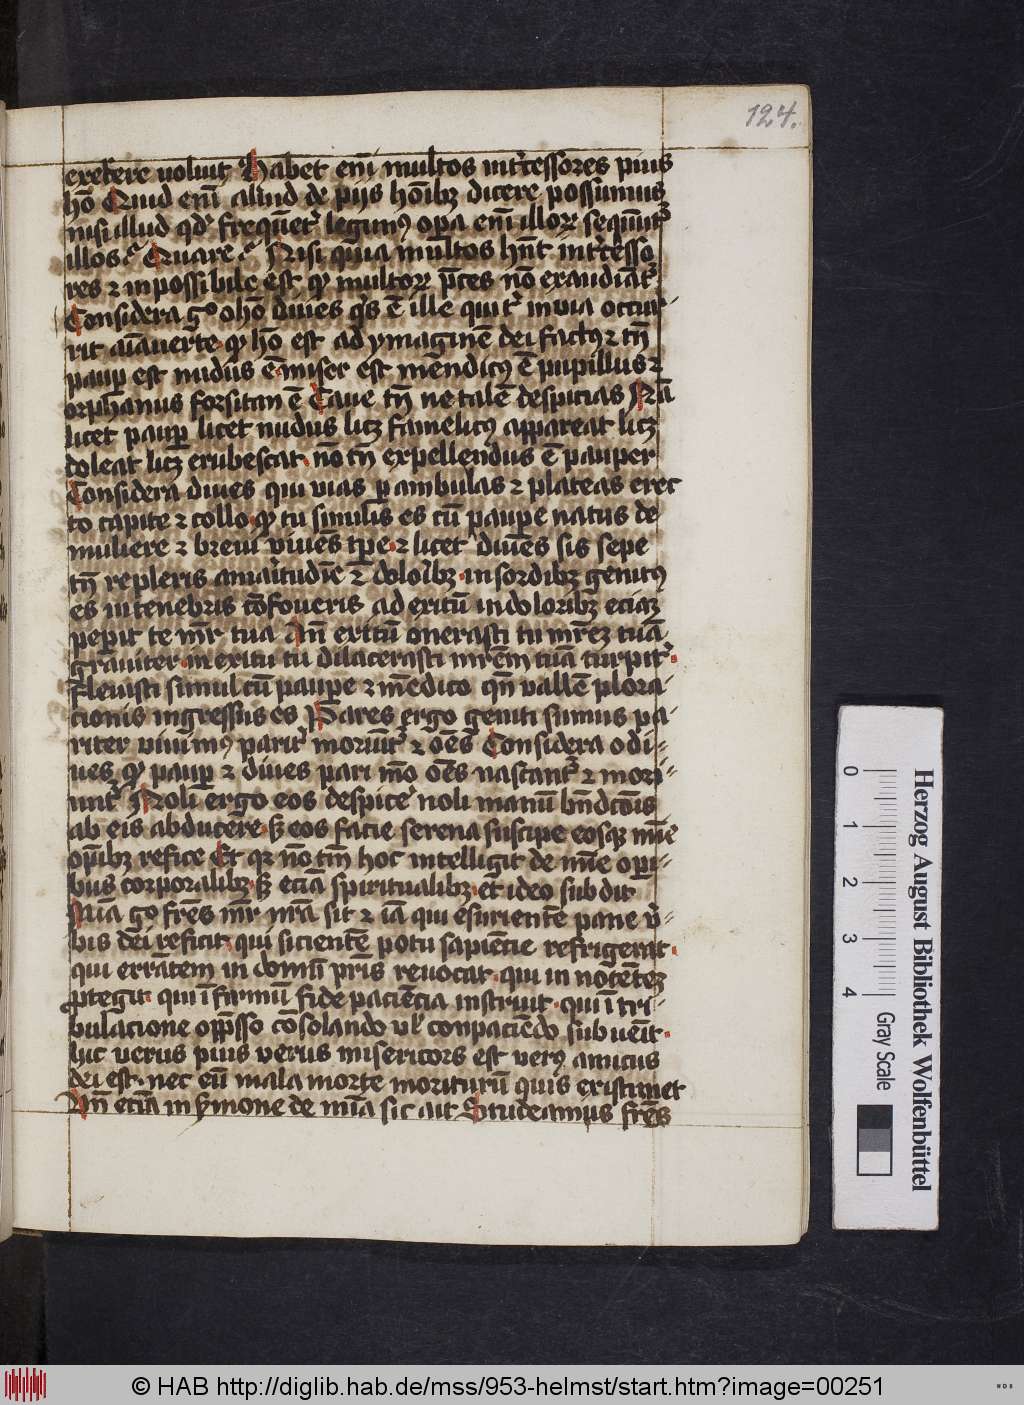 124.
exercere voluit Habet enī multos intercessores pius
hō Quid enī aliud de pijs hōibꝫ dicere possumus
nisi illud qd' freqūet' legimꝰ opa enī illoꝝ sequūt'
illos Quare Nisi quia multos hn̄t intercesso
res ⁊ inpossibile est ꝙ multoꝝ p̄ces nō exaudiāt'
Considera gº o hō diues qͥs ē ille qui t' in via occur
rit aīaverte ꝙ hō est ad ymaginē dei factꝰ ⁊ tn̄
paup̄ est nudus ē miser est mēdicꝰ ē pupillus ⁊
orphanus forsitan ē Caue tn̄ ne talē despicias Nā
licet paup̄ licet nudus licꝫ famelicꝰ appareat licꝫ
doleat licꝫ erubescat nō tn̄ expellendus ē pauper
Considera diues qui vias ꝑambulas ⁊ plateas erec
to capite ⁊ collo ꝙ tu similis es cū paupe natus de
muliere ⁊ breui viuēs tp̄e ⁊ licet diues sis sepe
tn̄ repleris amaritudīe ⁊ doloribꝫ in sordibꝫ genitꝰ
es in tenebris cōfoueris ad exitū in doloribꝫ eciaꝫ
peperit te mr̄ tua An̄ exitū onerasti tu mr̄eꝫ tuā
grauiter in exitu tu dilacerasti mr̄em tuā turpit'
Fleuisti simul cū paupe ⁊ mēdico qn̄ vallē plora
cionis ingressus es Pares ergo geniti sumus pa
riter viuimꝰ parit' moriūt' ⁊ oēs Considera o di
ues ꝙ paup̄ ⁊ diues pari mō oēs nascant' ⁊ mori
unt' Noli ergo eos despice' noli manū bn̄dcōnis
ab eis abducere sꝫ eos facie serena suscipe eosqꝫ mīe
opibꝫ refice Et qꝛ nō tm̄ hoc intelligit de mīe operi
bus corporalibꝫ sꝫ eciā spiritualibꝫ et ideo subdit
Mīa gº frēs mr̄ nr̄a sit ⁊ iā qui esurientē pane v'
bis dei reficit qui sicientē potu sapiēcie refrigerat
qui errātem in domū pr̄is reuocat qui in
ꝓtegit qui īfirmū fide paciēcia instruit qui ī tri
bulacione opp̄sso cōsolando vl' conpaciēdo subuēit
hic verus pius verus misericors est verꝰ amicus
dei est nec eū mala morte moriturū quis existimet
An̄ eciā in s'mone de mīa sic ait Studeamus frēs
0 1 2 3 4
Gray Scale
Herzog August Bibliothek Wolfenbüttel
© HAB http://diglib.hab.de/mss/953-helmst/start.htm?image=00251